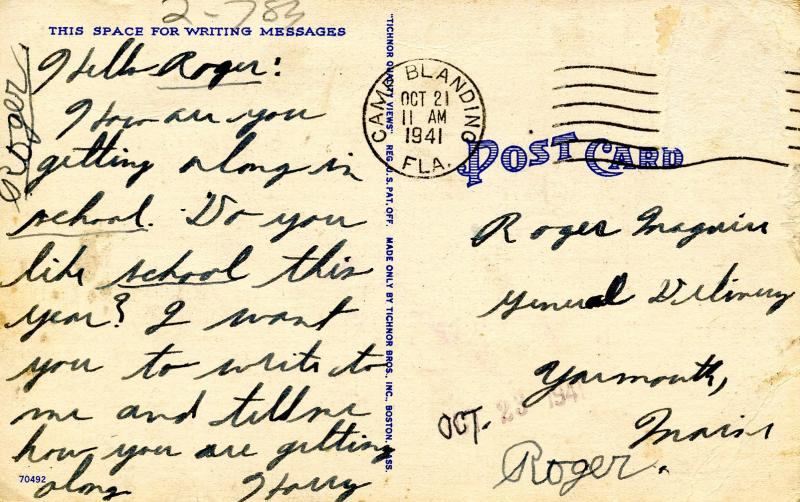 2-783
THIS SPACE FOR WRITING MESSAGES
Roger
Hello Roger:
How are you
getting along in
school. Do you
like school this
year? I want
you to write to
me and tell me
how you are getting
along Harry
70492
"TICHNOR QUALITY VIEWS" REG. U. S. PAT. OFF. MADE ONLY BY TICHNOR BROS., INC., BOSTON, MASS.
CAMP BLANDING
OCT 21
11 AM
1941
FLA.
POST CARD
Roger Maguire
General Delivery
Yarmouth,
Maine
OCT. 23 1941
Roger.